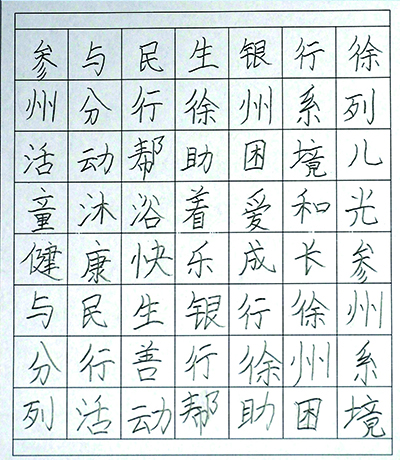 参与民生银行徐
州分行徐州系列
活动帮助困境儿
童沐浴着爱和光
健康快乐成长参
与民生银行徐州
分行善行徐州系
列活动帮助困境